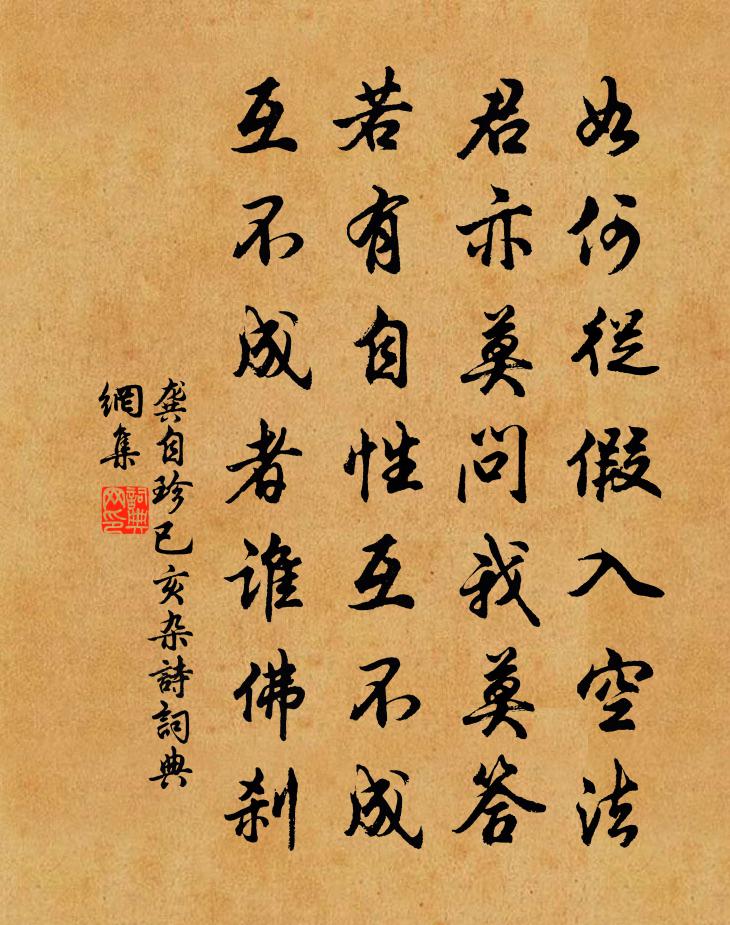 如何從假入空法
君亦莫問我莫答
若有自性互不成
互不成者誰佛剎
龔自珍己亥杂詩詞典
網集
詞典
网印